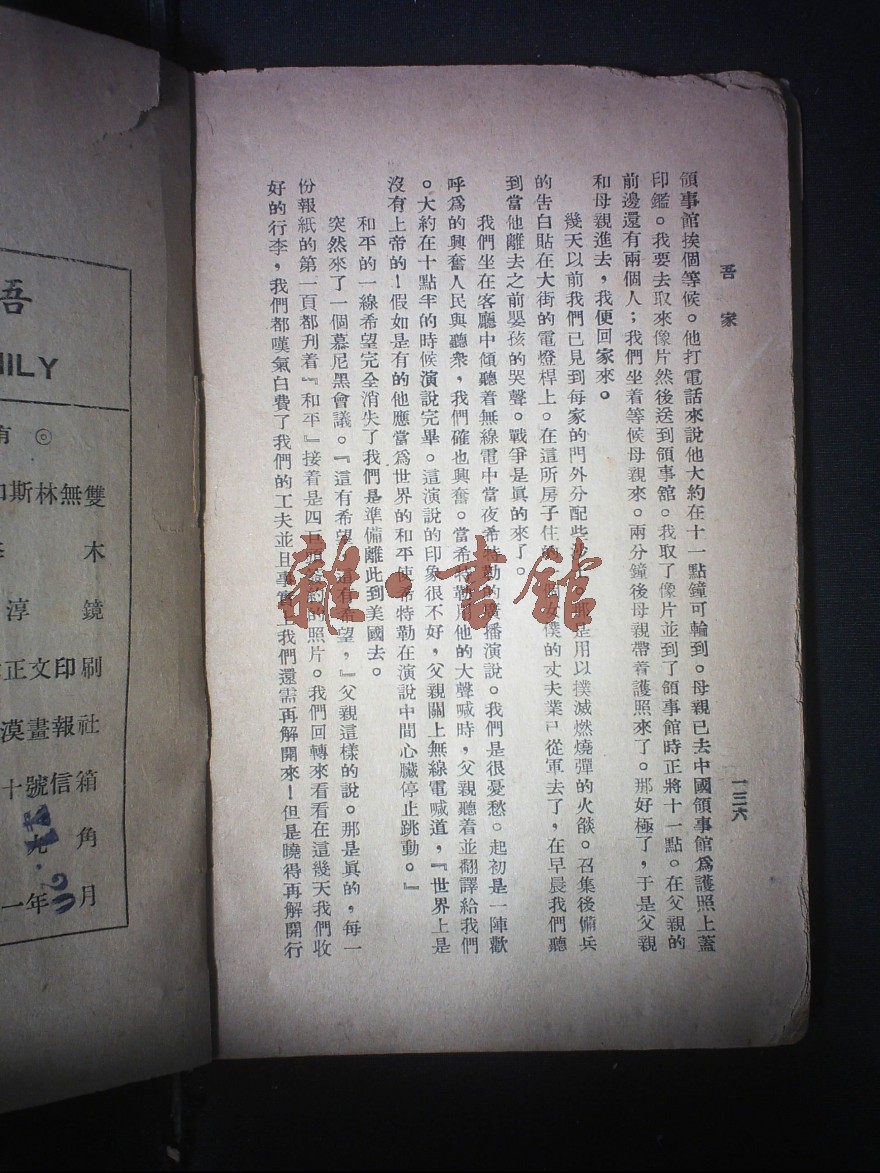 吾家
一三六
領事館挨個等候。他打電話來說他大約在十一點鐘可輪到。母親已去中國領事館爲護照上蓋
印鑑。我要去取來像片然後送到領事舘。我取了像片並到了領事館時正將十一點。在父親的
前邊還有兩個人；我們坐着等候母親來。兩分鐘後母親帶着護照來了。那好極了，于是父親
和母親進去，我便回家來。
幾天以前我們已見到每家的門外分配些沙。那是用以撲滅燃燒彈的火燄。召集後備兵
的告白貼在大街的電燈桿上。在這所房子住的女僕的丈夫業已從軍去了，在早晨我們聽
到當他離去之前嬰孩的哭聲。戰爭是眞的來了。
我們坐在客廳中傾聽着無線電中當夜希特勒的廣播演說。我們是很憂愁。起初是一陣歡
呼爲的興奮人民與聽衆，我們確也興奮。當希特勒用他的大聲喊時，父親聽着並翻譯給我們
。大約在十點半的時候演說完畢。這演說的印象很不好，父親關上無線電喊道，『世界上是
沒有上帝的！假如是有的他應當爲世界的和平使希特勒在演說中間心臟停止跳動。』
和平的一線希望完全消失了我們是準備離此到美國去。
突然來了一個慕尼黑會議。『這有希望，這有希望，』父親這樣的說。那是眞的，每一
份報紙的第一頁都刋着『和平』接着是四巨頭簽約的照片。我們回轉來看看在這幾天我們收
好的行李，我們都嘆氣白費了我們的工夫並且事實上我們還需再解開來！但是曉得再解開行
語
MILY
有◎
斯林無雙
木
淳鏡
正文印刷
漠畫報社
十號信箱
九角
一年 月
雜·書館